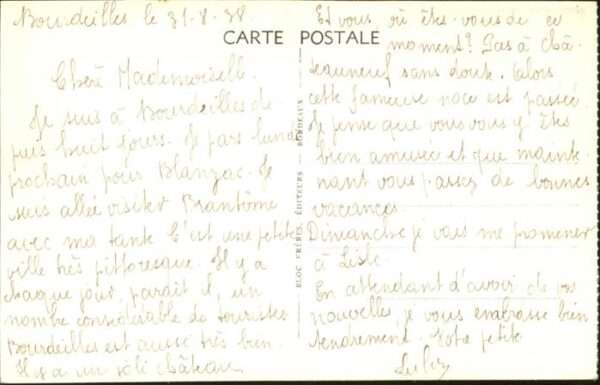 Bourdeilles le 31-8-38.
CARTE POSTALE
Chère Mademoiselle.
Je suis à Bourdeilles de-
puis huit jours. Je pars lundi
prochain pour Blanzac. Je
suis allée visiter Brantôme
avec ma tante C'est une petite
ville très pittoresque. Il y a
chaque jour, parait il, un
nombre considérable de touristes
Bourdeilles est aussi très bien.
Il y a un joli château
BLOC FRÈRES, ÉDITEURS - BORDEAUX
Et vous, où êtes-vous de ce
moment? Pas à Châ-
teauneuf sans doute. Alors
cette fameuse noce est passée
Je pense que vous vous y êtes
bien amusée et que mainte-
nant vous passez de bonnes
vacances
Dimanche je vais me promener
à Lisle
En attendant d'avoir de vos
nouvelles, je vous embrasse bien
tendrement. Votre petite